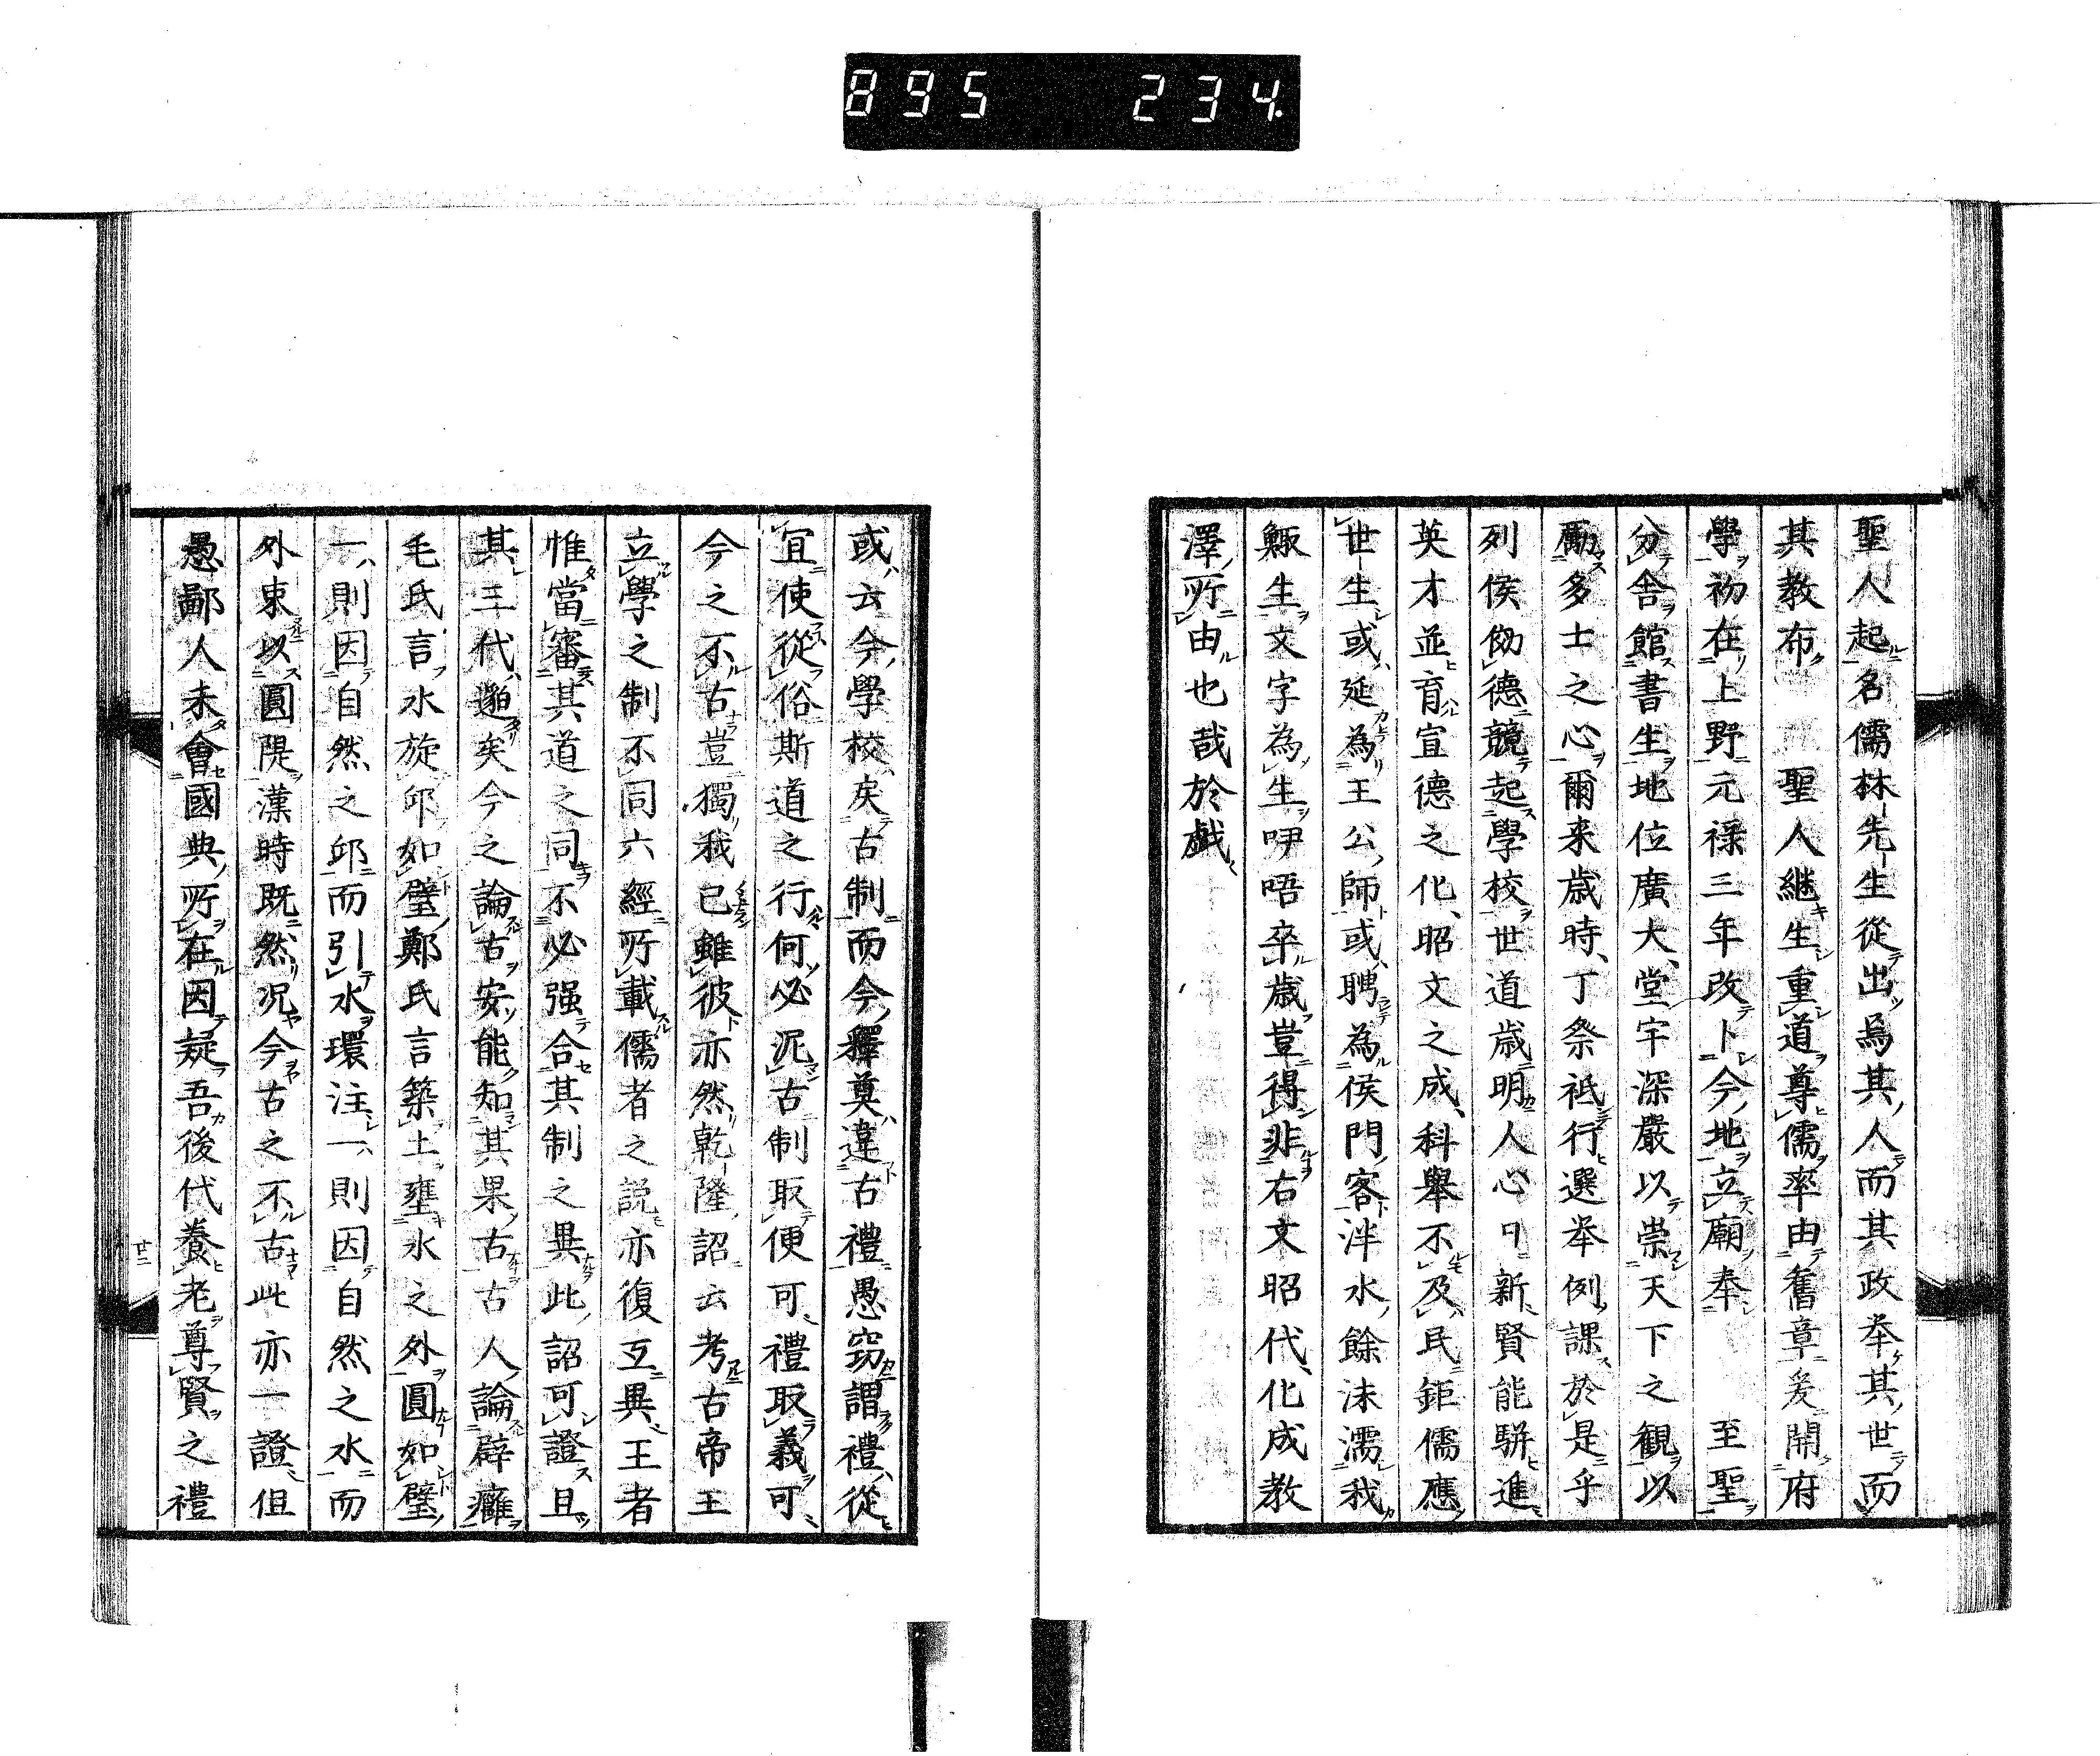 895 234
聖人起名儒林先生從出焉其人而其政夲其世而
其教布　聖人継生重道尊儒率由舊章爰開府
學初在上野元禄三年改卜今地立廟奉　至聖
分舎館書生地位廣大堂宇深嚴以崇天下之観以
勵多士之心爾来歳時丁祭祗行選举例課於是乎
列侯傚德競起學校世道歳明人心日新賢能駢進
英才並育宣德之化昭文之成科舉不及民鉅儒應
世生或延為王公師或聘為侯門客泮水餘沫濡我
鯫生文字為生咿唔卒歳豈得非右文昭代化成教
澤所由也哉於戲
或云今學校戾古制而今釋奠違古禮愚窃謂禮從
宜使從俗斯道之行何必泥古制取便可禮取義可
今之不古豈獨我已雖彼亦然乾隆詔云考古帝王
立學之制不同六經所載儒者之説亦復互異王者
惟當審其道之同不必强合其制之異此詔可證且
其三代邈矣今之論古安能知其果古古人論辟癰
毛氏言水旋邱如璧鄭氏言築土壅水之外圓如璧
一則因自然之邱而引水環注一則因自然之水而
外束以圓隄漢時既然况今古之不古此亦一證但
愚鄙人未會國典所在因疑吾後代養老尊賢之禮
廿二